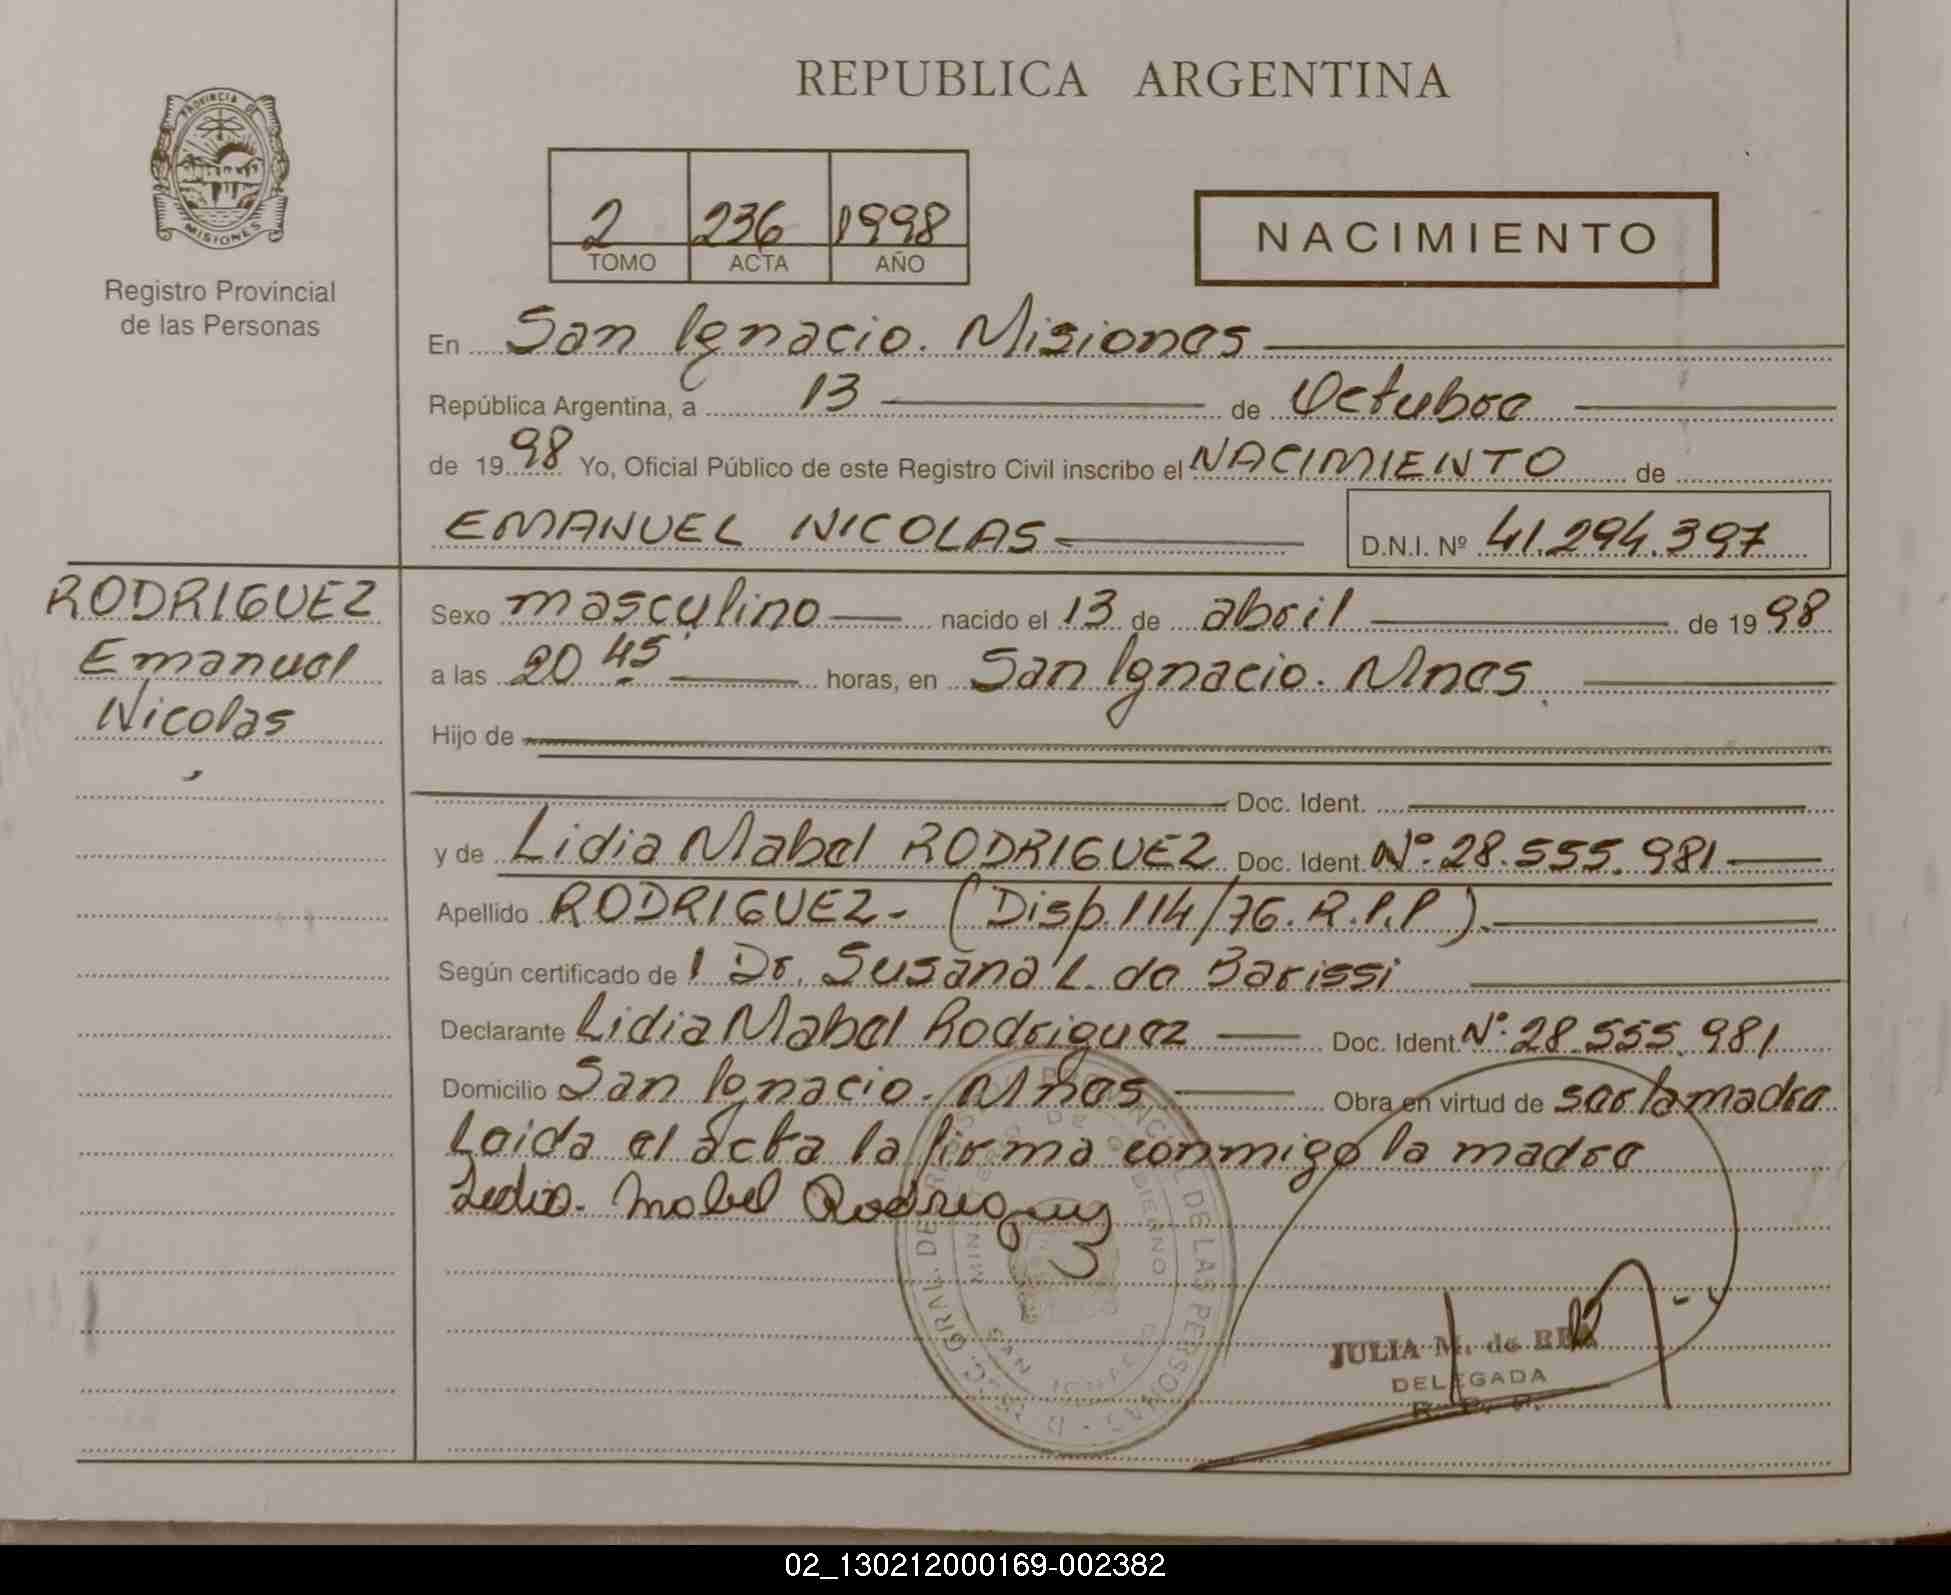 REPUBLICA ARGENTINA
PROVINCIA DE
MISIONES
Registro Provincial
de las Personas
2 236 1998
TOMO ACTA AÑO
NACIMIENTO
En San Ignacio. Misiones
República Argentina, a 13 de Octubre
de 1998 Yo, Oficial Público de este Registro Civil inscribo el NACIMIENTO de
EMANUEL NICOLAS D.N.I. Nº 41.294.397
RODRIGUEZ
Emanuel
Nicolas
Sexo masculino nacido el 13 de abril de 1998
a las 20 45 horas, en San Ignacio. Mnes.
Hijo de
Doc. Ident.
y de Lidia Mabel RODRIGUEZ Doc. Ident. Nº. 28.555.981
Apellido RODRIGUEZ- (Disp. 114/76. R.P.P).
Según certificado de Dr. Susana L. de Barissi
Declarante Lidia Mabel Rodriguez Doc. Ident. Nº. 28.555.981
Domicilio San Ignacio. Mnes Obra en virtud de ser la madre
Leida el acta la firma conmigo la madre
Lidia. Mabel Rodriguez
JULIA M. de
DELEGADA
R. P. P.
02_130212000169-002382